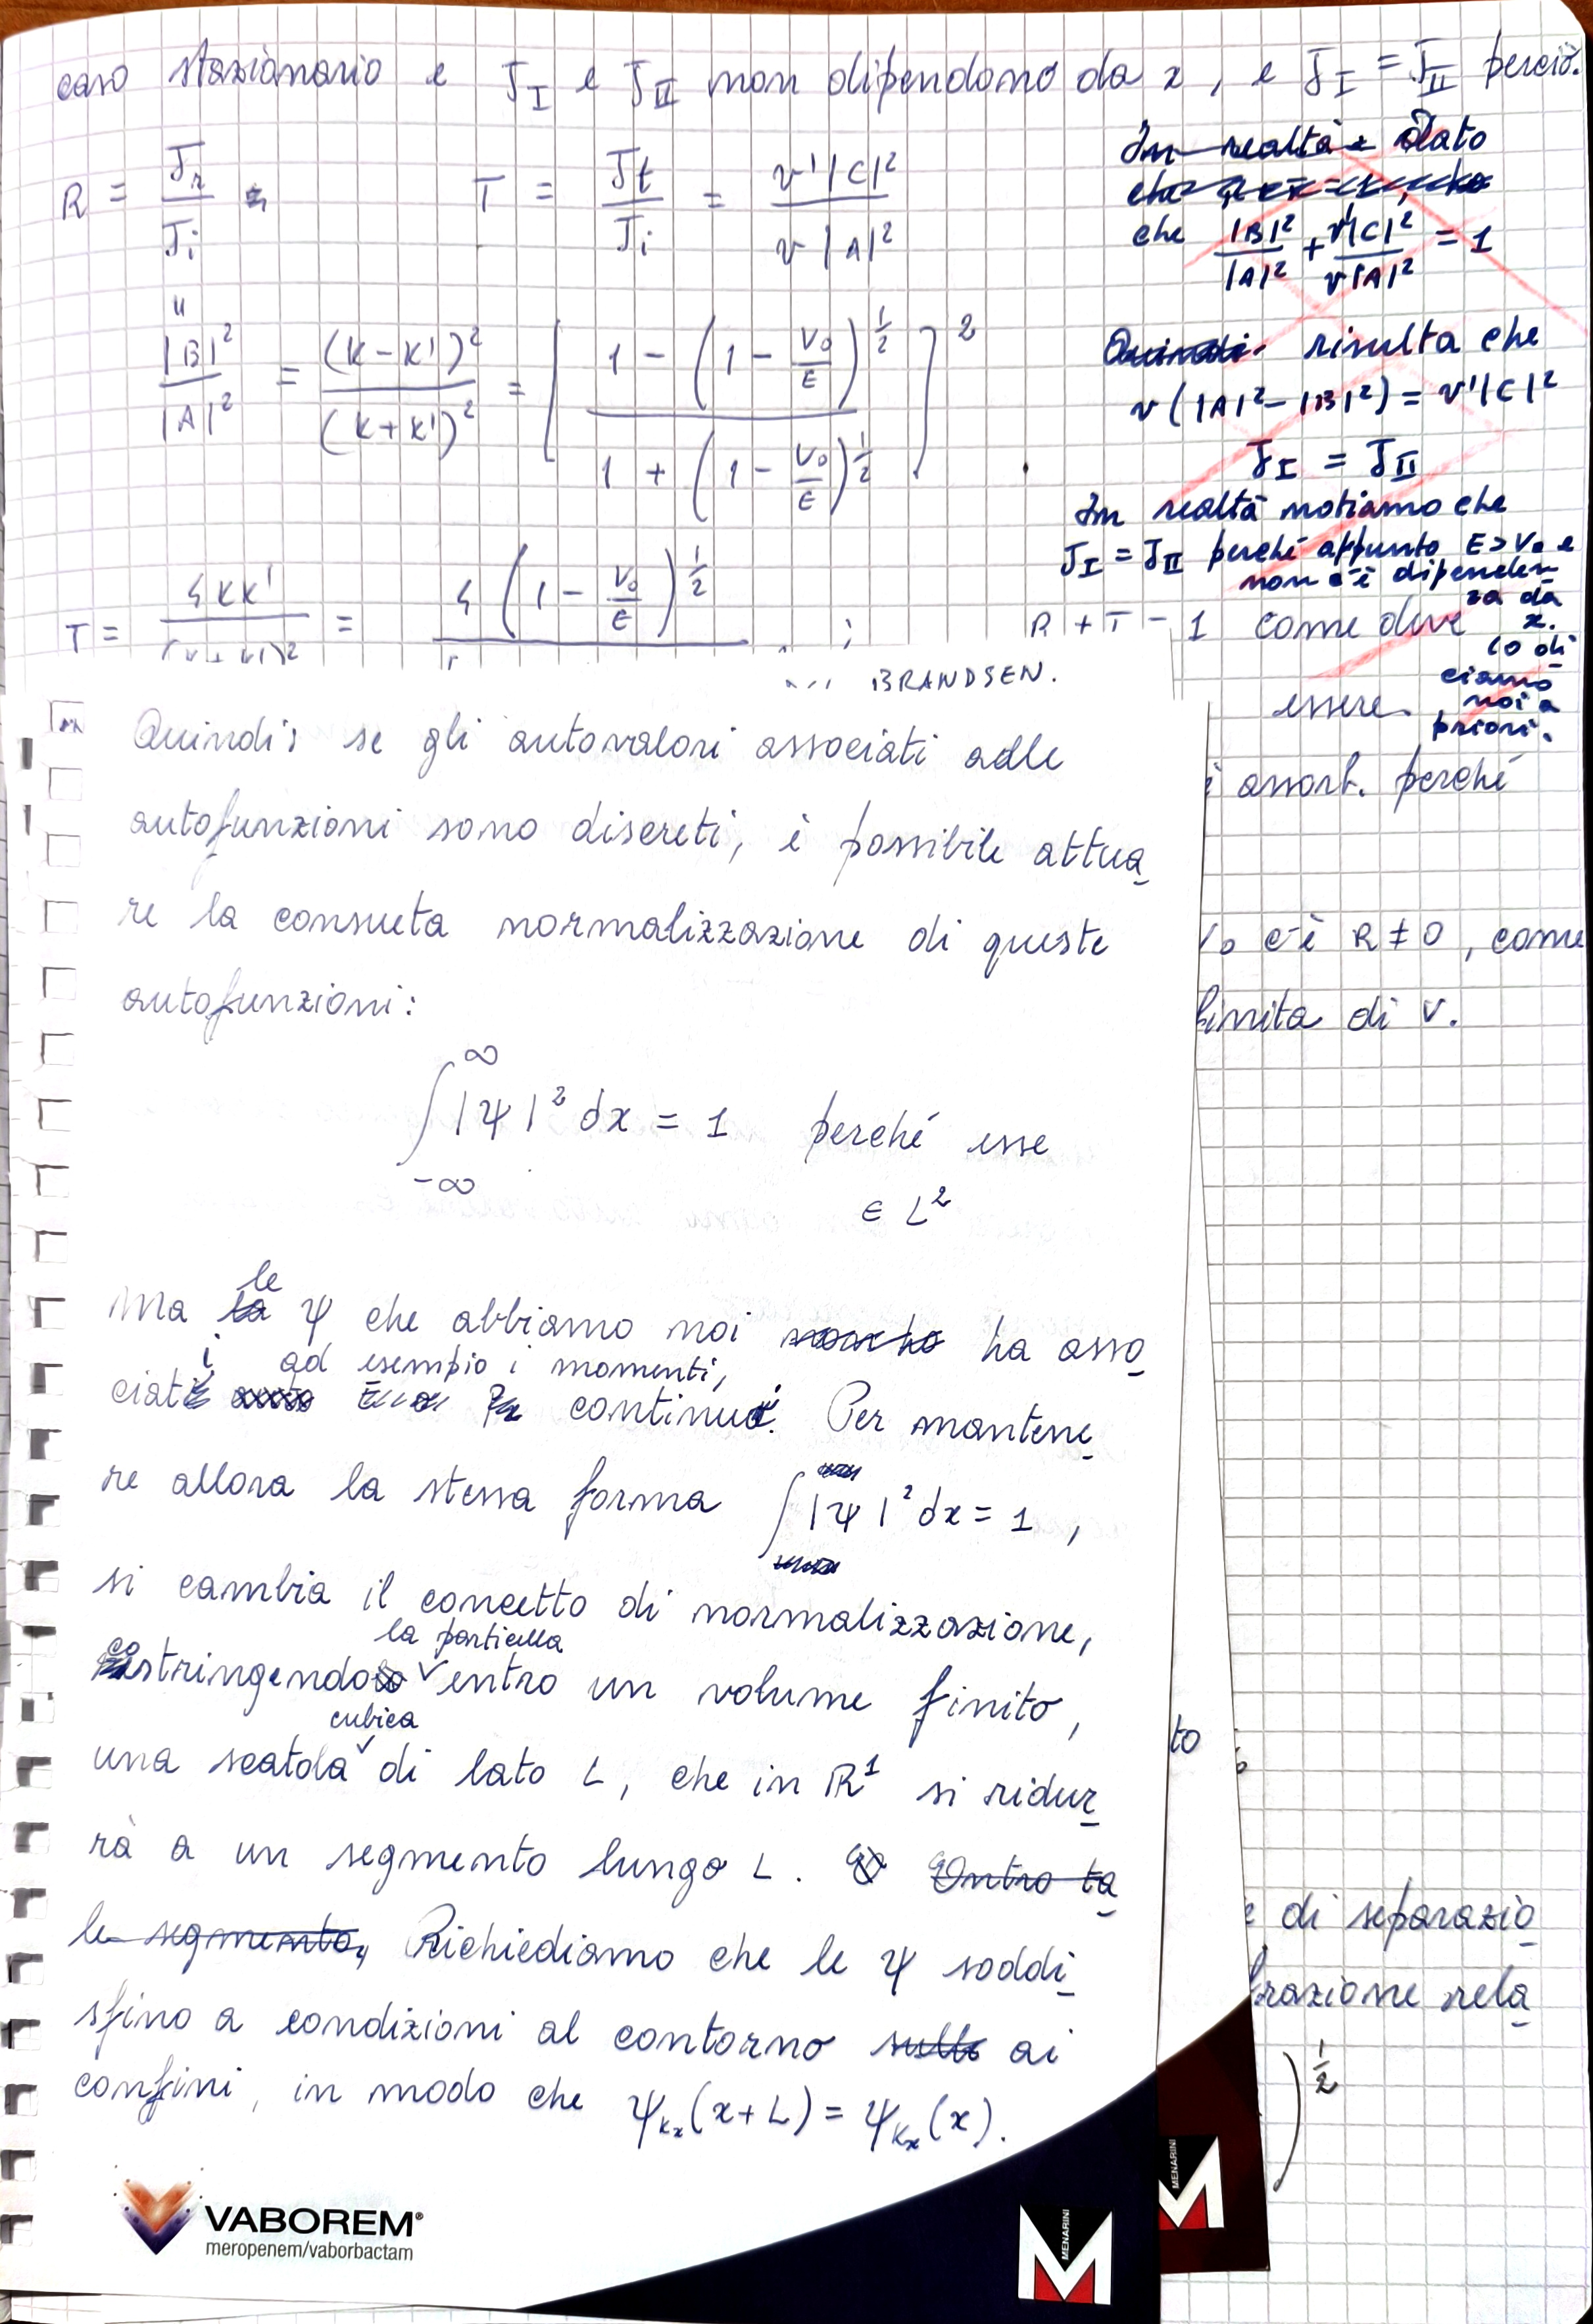 caso stazionario e J_I e J_II non dipendono da x, e J_I = J_II perciò.
R = J_r / J_i =
T = J_t / J_i = v'|C|² / v|A|²
In realtà Dato
che |B|²/|A|² + v'|C|²/v|A|² = 1
|B|²/|A|² = (k-k')²/(k+k')² = [ (1 - (1 - V₀/E)^½) / (1 + (1 - V₀/E)^½) ]²
Quindi risulta che
v(|A|² - |B|²) = v'|C|²
J_I = J_II
In realtà notiamo che
J_I = J_II perché appunto E>V₀ e
non c'è dipenden
za da
x.
Lo di
ciamo
noi a
priori.
T = 4kk' / (k+k')² = 4(1 - V₀/E)^½ ;
R + T = 1 come deve
essere.
BRANDSEN.
Quindi: se gli autovalori associati alle
autofunzioni sono discreti, è possibile attua
re la consueta normalizzazione di queste
autofunzioni:
∫_{-∞}^{∞} |ψ|² dx = 1 perché esse
∈ L²
Ma le ψ che abbiamo noi ha asso
ciati ad esempio i momenti, continui. Per mantene
re allora la stessa forma ∫ |ψ|² dx = 1,
si cambia il concetto di normalizzazione,
costringendo la particella entro un volume finito,
una scatola cubica di lato L, che in R¹ si ridur
rà a un segmento lungo L. Entro ta
le segmento, Richiediamo che le ψ soddi
sfino a condizioni al contorno sulle ai
confini, in modo che ψ_kx(x+L) = ψ_kx(x).
assorb. perché
V₀ c'è R ≠ 0, come
finita di V.
to
e di separazio
frazione rela
)^½
VABOREM®
meropenem/vaborbactam
MENARINI
MENARINI